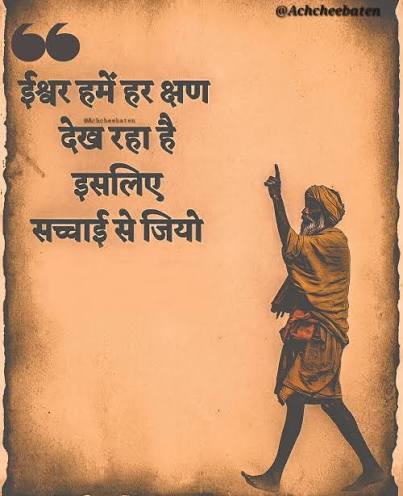 @Achcheebaten
ईश्वर हमें हर क्षण
@Achcheebaten
देख रहा है
इसलिए
सच्चाई से जियो